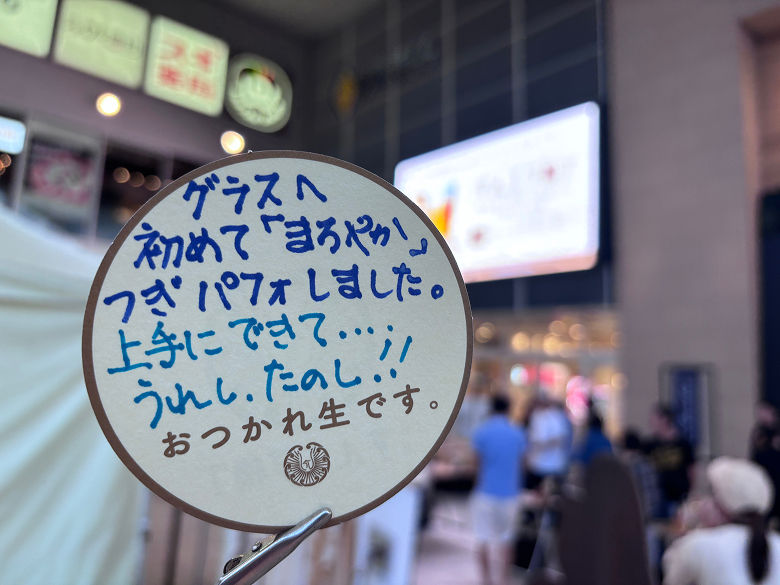 グラスへ
初めて「まろやか」
つぎパフォしました。
上手にできて…
うれし、たのし!!
おつかれ生です。